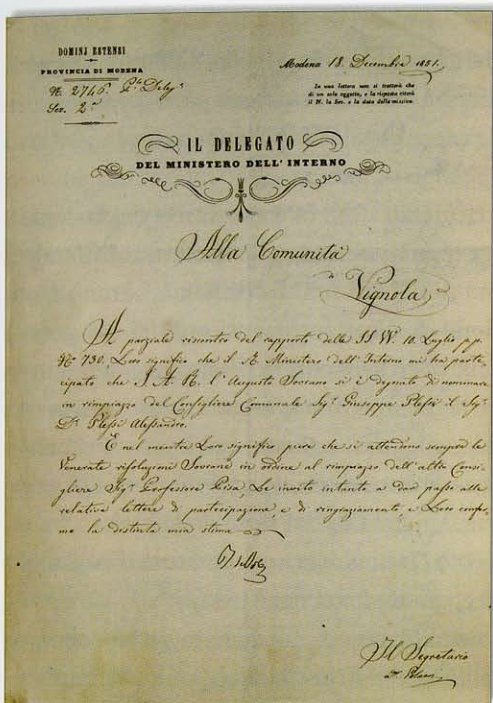 DOMINJ ESTENSI
PROVINCIA DI MODENA
N. 2746.
Sez. 2ª
Modena 18. Decembre 1851.
In una lettera non si tratterà che
di un solo oggetto, e la risposta citerà
il N. la Sez. e la data della missiva.
IL DELEGATO
DEL MINISTERO DELL' INTERNO
Alla Comunità
Vignola
A parziale riscontro del rapporto delle SS VV. 10. Luglio p. p.
N° 730, Loro significo che il Ministero dell' Interno mi ha parte-
cipato che S. A. R. l' Augusto Sovrano si è degnato di nominare
in rimpiazzo del Consigliere Comunale Sigr Giuseppe Plessi il Sigr
Dr Plessi Alessandro.
E nel mentre Loro significo pure che si attendono sempre le
Venerate risoluzioni Sovrane in ordine al rimpiazzo dell' altro Consi-
gliere Sigr Professore Le invito intanto a dar passo alle
relative lettere di partecipazione, e di ringraziamento, e Loro confer-
mo la distinta mia stima
Il Segretario